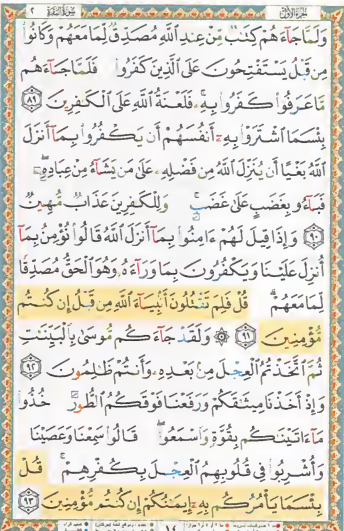 سورة البقرة ٢
وَلَمَّا جَآءَهُمْ كِتَٰبٌ مِّنْ عِندِ ٱللَّهِ مُصَدِّقٌ لِّمَا مَعَهُمْ وَكَانُوا۟
مِن قَبْلُ يَسْتَفْتِحُونَ عَلَى ٱلَّذِينَ كَفَرُوا۟ فَلَمَّا جَآءَهُم
مَّا عَرَفُوا۟ كَفَرُوا۟ بِهِۦ ۚ فَلَعْنَةُ ٱللَّهِ عَلَى ٱلْكَٰفِرِينَ ٨٩
بِئْسَمَا ٱشْتَرَوْا۟ بِهِۦٓ أَنفُسَهُمْ أَن يَكْفُرُوا۟ بِمَآ أَنزَلَ
ٱللَّهُ بَغْيًا أَن يُنَزِّلَ ٱللَّهُ مِن فَضْلِهِۦ عَلَىٰ مَن يَشَآءُ مِنْ عِبَادِهِۦ ۖ
فَبَآءُو بِغَضَبٍ عَلَىٰ غَضَبٍ ۚ وَلِلْكَٰفِرِينَ عَذَابٌ مُّهِينٌ
٩٠ وَإِذَا قِيلَ لَهُمْ ءَامِنُوا۟ بِمَآ أَنزَلَ ٱللَّهُ قَالُوا۟ نُؤْمِنُ بِمَآ
أُنزِلَ عَلَيْنَا وَيَكْفُرُونَ بِمَا وَرَآءَهُۥ وَهُوَ ٱلْحَقُّ مُصَدِّقًا
لِّمَا مَعَهُمْ ۗ قُلْ فَلِمَ تَقْتُلُونَ أَنۢبِيَآءَ ٱللَّهِ مِن قَبْلُ إِن كُنتُم
مُّؤْمِنِينَ ٩١ ۞ وَلَقَدْ جَآءَكُم مُّوسَىٰ بِٱلْبَيِّنَٰتِ
ثُمَّ ٱتَّخَذْتُمُ ٱلْعِجْلَ مِنۢ بَعْدِهِۦ وَأَنتُمْ ظَٰلِمُونَ ٩٢
وَإِذْ أَخَذْنَا مِيثَٰقَكُمْ وَرَفَعْنَا فَوْقَكُمُ ٱلطُّورَ خُذُوا۟
مَآ ءَاتَيْنَٰكُم بِقُوَّةٍ وَٱسْمَعُوا۟ ۖ قَالُوا۟ سَمِعْنَا وَعَصَيْنَا
وَأُشْرِبُوا۟ فِى قُلُوبِهِمُ ٱلْعِجْلَ بِكُفْرِهِمْ ۚ قُلْ
بِئْسَمَا يَأْمُرُكُم بِهِۦٓ إِيمَٰنُكُمْ إِن كُنتُم مُّؤْمِنِينَ ٩٣
١٤